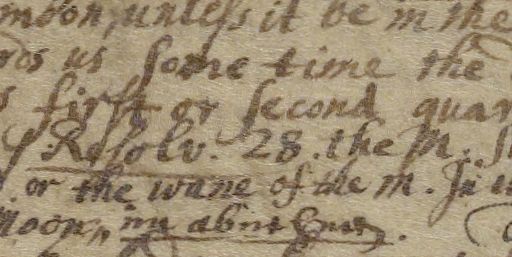 moon, unless it be in the
us some time the
first or second quar
Resolv. 28. the m.
or the wane of the m.
moon,